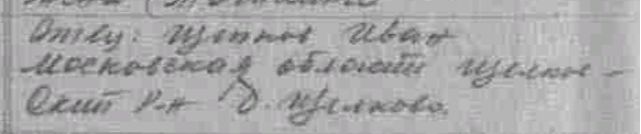 Отец: Щепков Иван
Московская область Щелков-
ский р-н д. Щелково.